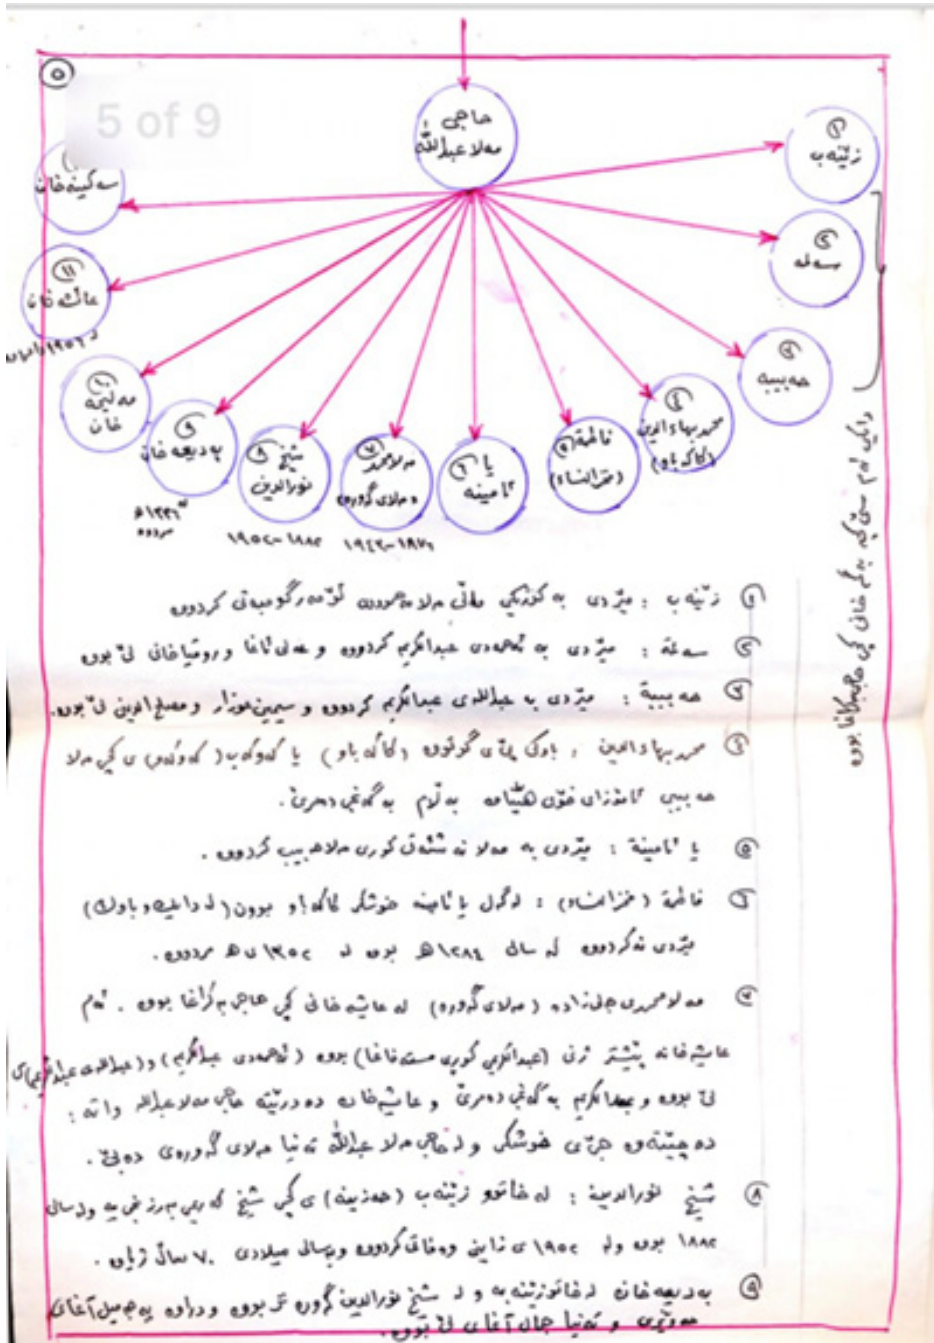 ٥
5 of 9
حاجی
مەلا عبداللە
١
زێنەب
٢
سەلمە
٣
حەبیبە
٤
محمد بهاءالدین
(کاکە باو)
٥
فاطمة
(خیرالنساء)
٦
یا
ئامینە
٧
مەلا محمد
«مەلای گەورە»
١٨٧٦-١٩٤٣
٨
شێخ
نورالدین
١٨٨٢-١٩٥٢
٩
بەدیعە خان
مردووە
١٠
مەلیحە
خان
١١
عائشە خان
سەکینە خان
دایکی ئەم سێ کچە بەگەر خانی کچی حاجی بەکراغا بووە
١ زێنەب : مێردی بە کوڕێکی ماڵی مەلا مەحمودی کردووە
٢ سەلمة : مێردی بە ئەحمەدی عبدالکریم کردووە و عەلی ئاغا و روقیاخانی لێ بووە
٣ حەبیبة : مێردی بە عبداللەی عبدالکریم کردووە و سیمین عوزار و مصلح الدین لێ بووە.
٤ محمد بهاءالدین ، باوکی پێی گوتووە (کاکە باو) یا کەوکەب (کەوکەو) ی کچی مەلا
حەبیبی ئامۆزای خۆی هێناوە بەڵام بە گەنجی دەمرێ.
٥ یا ئامینة : مێردی بە مەلا کوری مەلا حبیب کردووە .
٦ فاطمة (خیرالنساء) : لەگەل یا ئامینە خوشکی کاکە باو بوون (لە دایک و باوک)
مێردی نەکردووە لە ساڵی ١٢٨٤ هـ بووە لە ١٣٥٢ ی هـ مردووە .
٧ مەلا محمدی جلی زادە (مەلای گەورە) لە عایشە خانی کچی حاجی بەکراغا بووە . ئەم
عایشە خانە پێشتر ژنی (عبدالکریمی کوری مستەفاغا) بووە (ئەحمەدی عبدالکریم) و (عبداللەی عبدالکریم) ی
لێ بووە و عبدالکریم بە گەنجی دەمرێ و عایشەخان دەدرێتە حاجی مەلا عبداللە واتە :
دەچێتەوە جێی خوشکی و لە حاجی مەلا عبداللە تەنیا مەلای گەورەی دەبێ .
٨ شێخ نورالدین : لە خاتوو زێنەب (حەزینە) ی کچی شێخ بەرزنجی یە ولە ساڵی
١٨٨٢ بووە ولە ١٩٥٢ ی زاینی وەفاتی کردووە وبەساڵی میلادی ٧٠ ساڵ ژیاوە .
٩ بەدیعە خان لە خاتوو زێنەبە و لە شێخ نورالدین گەورە تر بووە ودراوە بە جەمیل آغای
حەوێزی و تەنیا جمال آغای لێ بووە .